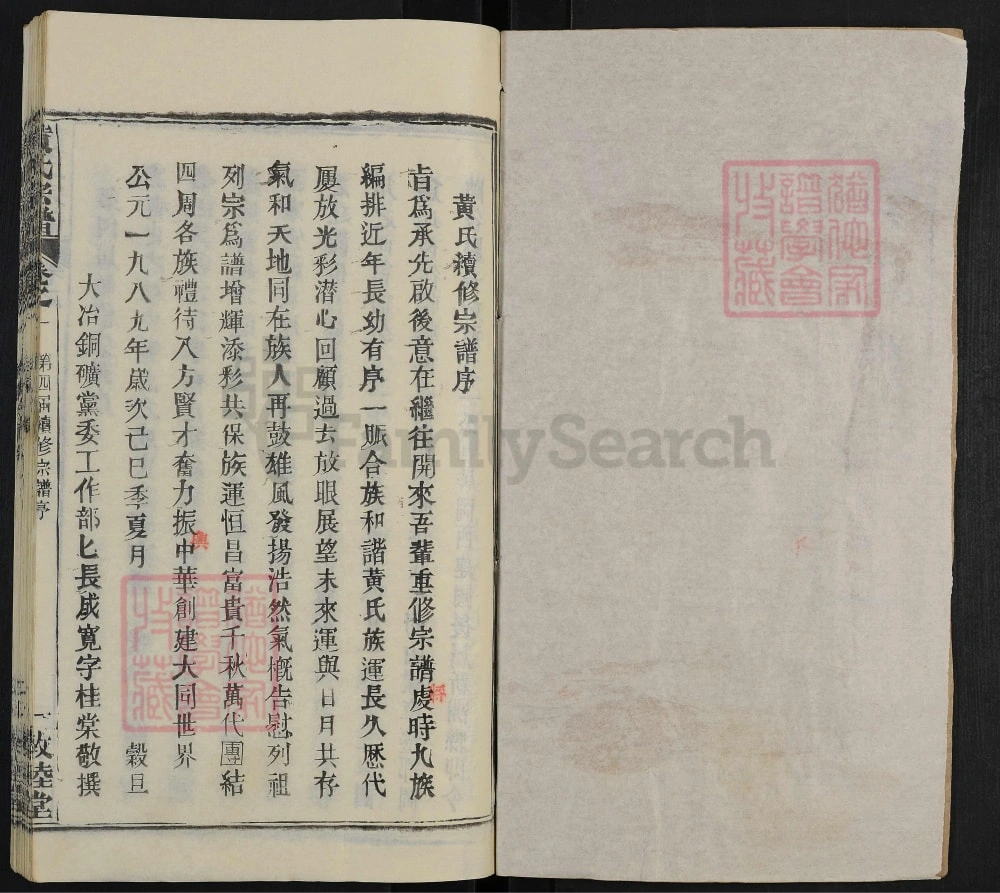 黃氏續修宗譜序
旨爲承先啟後意在繼往開來吾輩重修宗譜處時九族
編排近年長幼有序一脈合族和諧黃氏族運長久歷代
厦放光彩潜心回顧過去放眼展望未來運與日月共存
氣和天地同在族人再鼓雄風發揚浩然氣概告慰列祖
列宗爲譜增輝添彩共保族運恒昌富貴千秋萬代團結
四周各族禮待八方賢才奮力振中華創建大同世界
興
公元一九八九年歲次己巳季夏月 穀旦
大冶銅礦黨委工作部匕長成寬字桂棠敬撰
黃氏宗譜
卷之一
第四届續修宗譜序
一
敦睦堂
猶他家譜學會收藏
猶他家譜學會收藏
FamilySearch